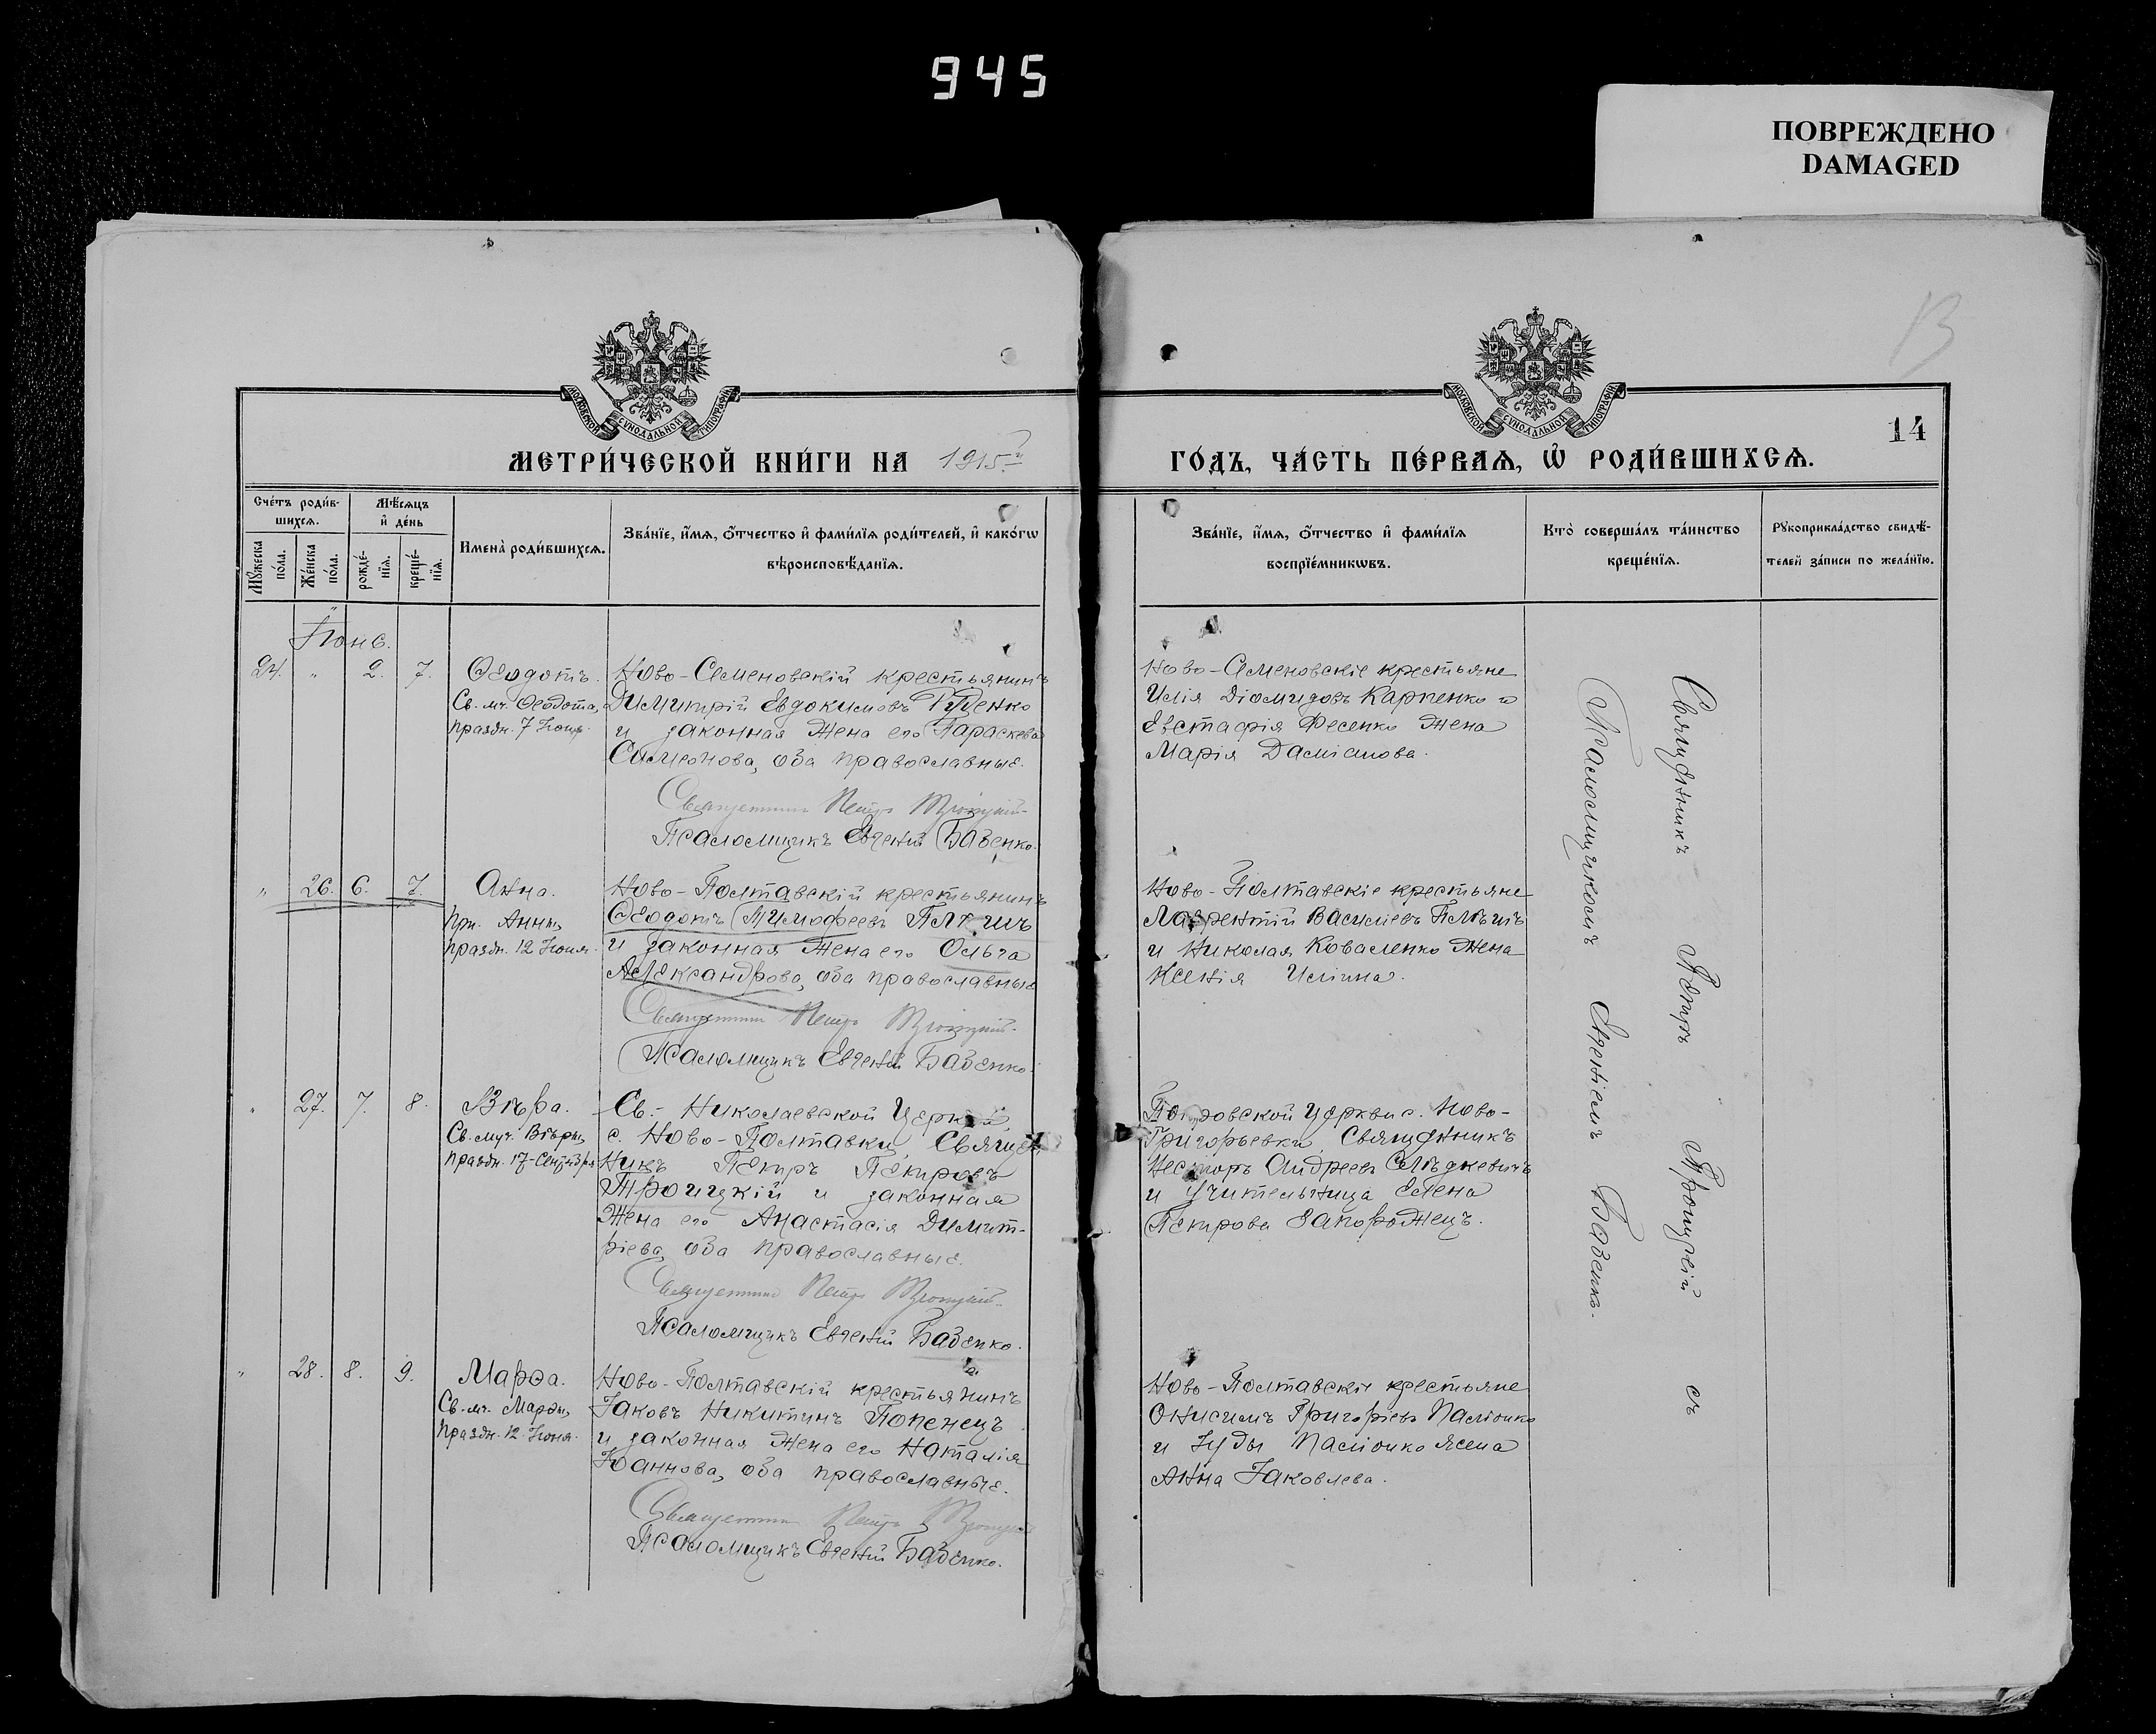 945
ПОВРЕЖДЕНО
DAMAGED
13
14
МОСКОВСКОЙ СѴНОДАЛЬНОЙ ТИПОГРАФІИ
МОСКОВСКОЙ СѴНОДАЛЬНОЙ ТИПОГРАФІИ
МЕТРИ́ЧЕСКОЙ КНИ́ГИ НА 1915й
ГО́ДЪ, ЧА́СТЬ ПЕ́РВАѦ, Ѡ҆ РОДИ́ВШИХСѦ.
Сче́тъ роди́в-
шихсѧ.
Мꙋ́жеска по́ла.
Же́нска по́ла.
Мѣ́сѧцъ
и҆ де́нь
рожде́-
нїѧ.
креще́-
нїѧ.
Имена̀ роди́вшихсѧ.
Зва́нїе, и҆́мѧ, ѻ҆́тчество и҆ фами́лїѧ роди́телей, и҆ како́гѡ
вѣроисповѣ́данїѧ.
Зва́нїе, и҆́мѧ, ѻ҆́тчество и҆ фами́лїѧ
воспрїе́мникѡвъ.
Кто̀ соверша́лъ та́инство
креще́нїѧ.
Рꙋкоприкла́дство свидѣ́-
телей за́писи по жела́нїю.
Іюнь.
24. " 2. 7. Ѳеодотъ.
Св. мч. Ѳеодота,
праздн. 7 Іюня.
Ново-Семеновскій крестьянинъ
Димитрій Евдокимовъ Руденко
и законная жена его Параскева
Симеонова, оба православные.
Священникъ Петръ Троицкій
Псаломщикъ Евгеній Бабенко.
Ново-Семеновскіе крестьяне
Илія Діомидовъ Карпенко и
Евстафія Фесенко жена
Марія Даміанова.
" 26. 6. 7. Анна.
Прп. Анны,
праздн. 12 Іюня.
Ново-Полтавскій крестьянинъ
Ѳеодотъ Тимофеевъ
и законная жена его Ольга
Александрова, оба православные
Священникъ Петръ Троицкій
Псаломщикъ Евгеній Бабенко.
Ново-Полтавскіе крестьяне
Лаврентій Василіевъ
и Николая Коваленко жена
Ксенія Иліина.
" 27. 7. 8. Вѣра.
Св. муч. Вѣры,
праздн. 17-Сентября
Св.-Николаевской Церкви,
с. Ново-Полтавки, Священ
никъ Петръ Петровъ
Троицкій и законная
жена его Анастасія Димит-
ріева, оба православные.
Священникъ Петръ Троицкій
Псаломщикъ Евгеній Бабенко.
Покровской Церкви с. Ново-
Григорьевки, Священникъ
Несторъ Андреевъ
и учительница Елена
Петрова Запорожецъ.
" 28. 8. 9. Марѳа.
Св. мч. Марѳы,
праздн. 12 Іюня.
Ново-Полтавскій крестьянинъ
Іаковъ Никитинъ Попенецъ
и законная жена его Наталія
Іоаннова, оба православные.
Священникъ Петръ Троицкій
Псаломщикъ Евгеній Бабенко.
Ново-Полтавскіе крестьяне
Онисимъ Григоріевъ
и Іуды жена
Анна Іаковлева.
Священникъ Петръ Троицкій съ
Псаломщикомъ Евгеніемъ Бабенко.